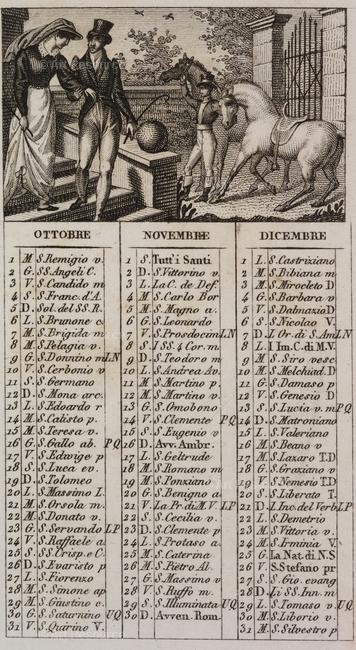 OTTOBRE
1 M S.Remigio v.
2 G. SS.Angeli C.
3 V. S.Candido m
4 S. S.Franc. d'A.
5 D. Sol. del SS.R.
6 L. S.Brunone c.
7 M. S.Brigida m.
8 M. S.Pelagia v.
9 G. S.Donnino m LN
10 V. S.Cerbonio v
11 S. S.Germano
12 D. S.Mona arc.
13 L. S.Edoardo r
14 M. S.Calisto p.
15 M. S.Teresa v.
16 G. S.Gallo ab. PQ
17 V. S.Edwige p
18 S. S.Luca ev.
19 D. S.Tolomeo
20 L. S.Massimo L.
21 M. S.Orsola m.
22 M. S.Donato v.
23 G. S.Servando LP
24 V. S.Raffaele a.
25 S. SS.Crisp. e C.
26 D. S.Evaristo p
27 L. S.Fiorenzo
28 M. S.Simone ap
29 M. S.Giustino c.
30 G. S.Saturnino UQ
31 V. S.Quirino V.
NOVEMBRE
1 S. Tutt'i Santi
2 D. S.Vittorino v.
3 L. La C. de Def.
4 M. S.Carlo Bor
5 M. S.Magno a.
6 G. S.Leonardo
7 V. S.Prosdocimo LN
8 S. I SS 4 Cor. m.
9 D. S.Teodoro m
10 L. S.Andrea Av.
11 M. S.Martino p.
12 M. S.Martino p.
13 G. S.Omobono
14 V. S.Clemente PQ
15 S. S.Eugenio v
16 D. Avv. Ambr.
17 L. S.Geltrude
18 M. S.Romano m
19 M. S.Ponziano
20 G. S.Benigno a.
21 V. La Pr. di M.V. LP
22 S. S.Cecilia v.
23 D. S.Clemente p
24 L. S.Protaso a.
25 M. S.Caterina
26 M. S.Pietro Al.
27 G. S.Massimo v
28 V. S.Ruffo m.
29 S. S.Illuminata UQ
30 D. Avven. Rom.
DICEMBRE
1 L. S.Castriziano
2 M. S.Bibiana m
3 M. S.Mirocleto D
4 G. S.Barbara v
5 V. S.Dalmazio D
6 S. S.Nicolao V.
7 D. I. Or. di S. Am LN
8 L. I Im. C. di M.V.
9 M. S.Siro vesc
10 M. S.Melchiad. D
11 G. S.Damaso p
12 V. S.Genesio D
13 S. S.Lucia v. m PQ
14 D. S.Matroniano
15 L. S.Valeriano
16 M. S.Beano v
17 M. S.Lazaro T.D
18 G. S.Graziano v
19 V. S.Nemesio T.D
20 S. S.Liberato T.
21 D. L Inc. del Verb LP
22 L. S.Demetrio
23 M. S.Vittoria v.
24 M. S.Irminia V.
25 G. La Nat. di N.S
26 V. S.Stefano pr
27 S. S.Gio. evang
28 D. Li SS. Inn. m
29 L. S.Tomaso v UQ
30 M. S.Liborio v.
31 M. S.Silvestro p